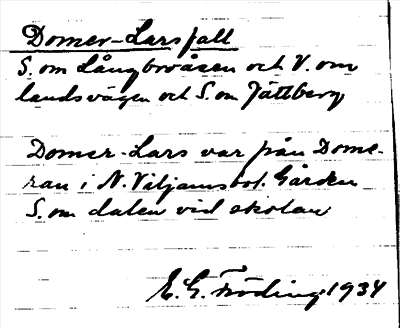 Domer-Lars fall
S. om Långbroåsen och V. om
landsvägen och S. om Jättberg
Domer-Lars var från Dome-
ran i N. Viljamsbol. Gården
S. om dalen vid skolan
E. G. Fröding 1934